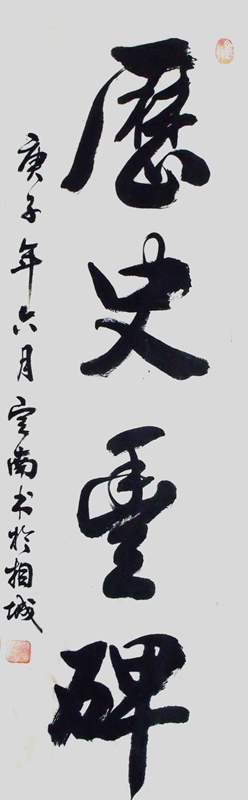 歷史豐碑
庚子年六月南书於相城